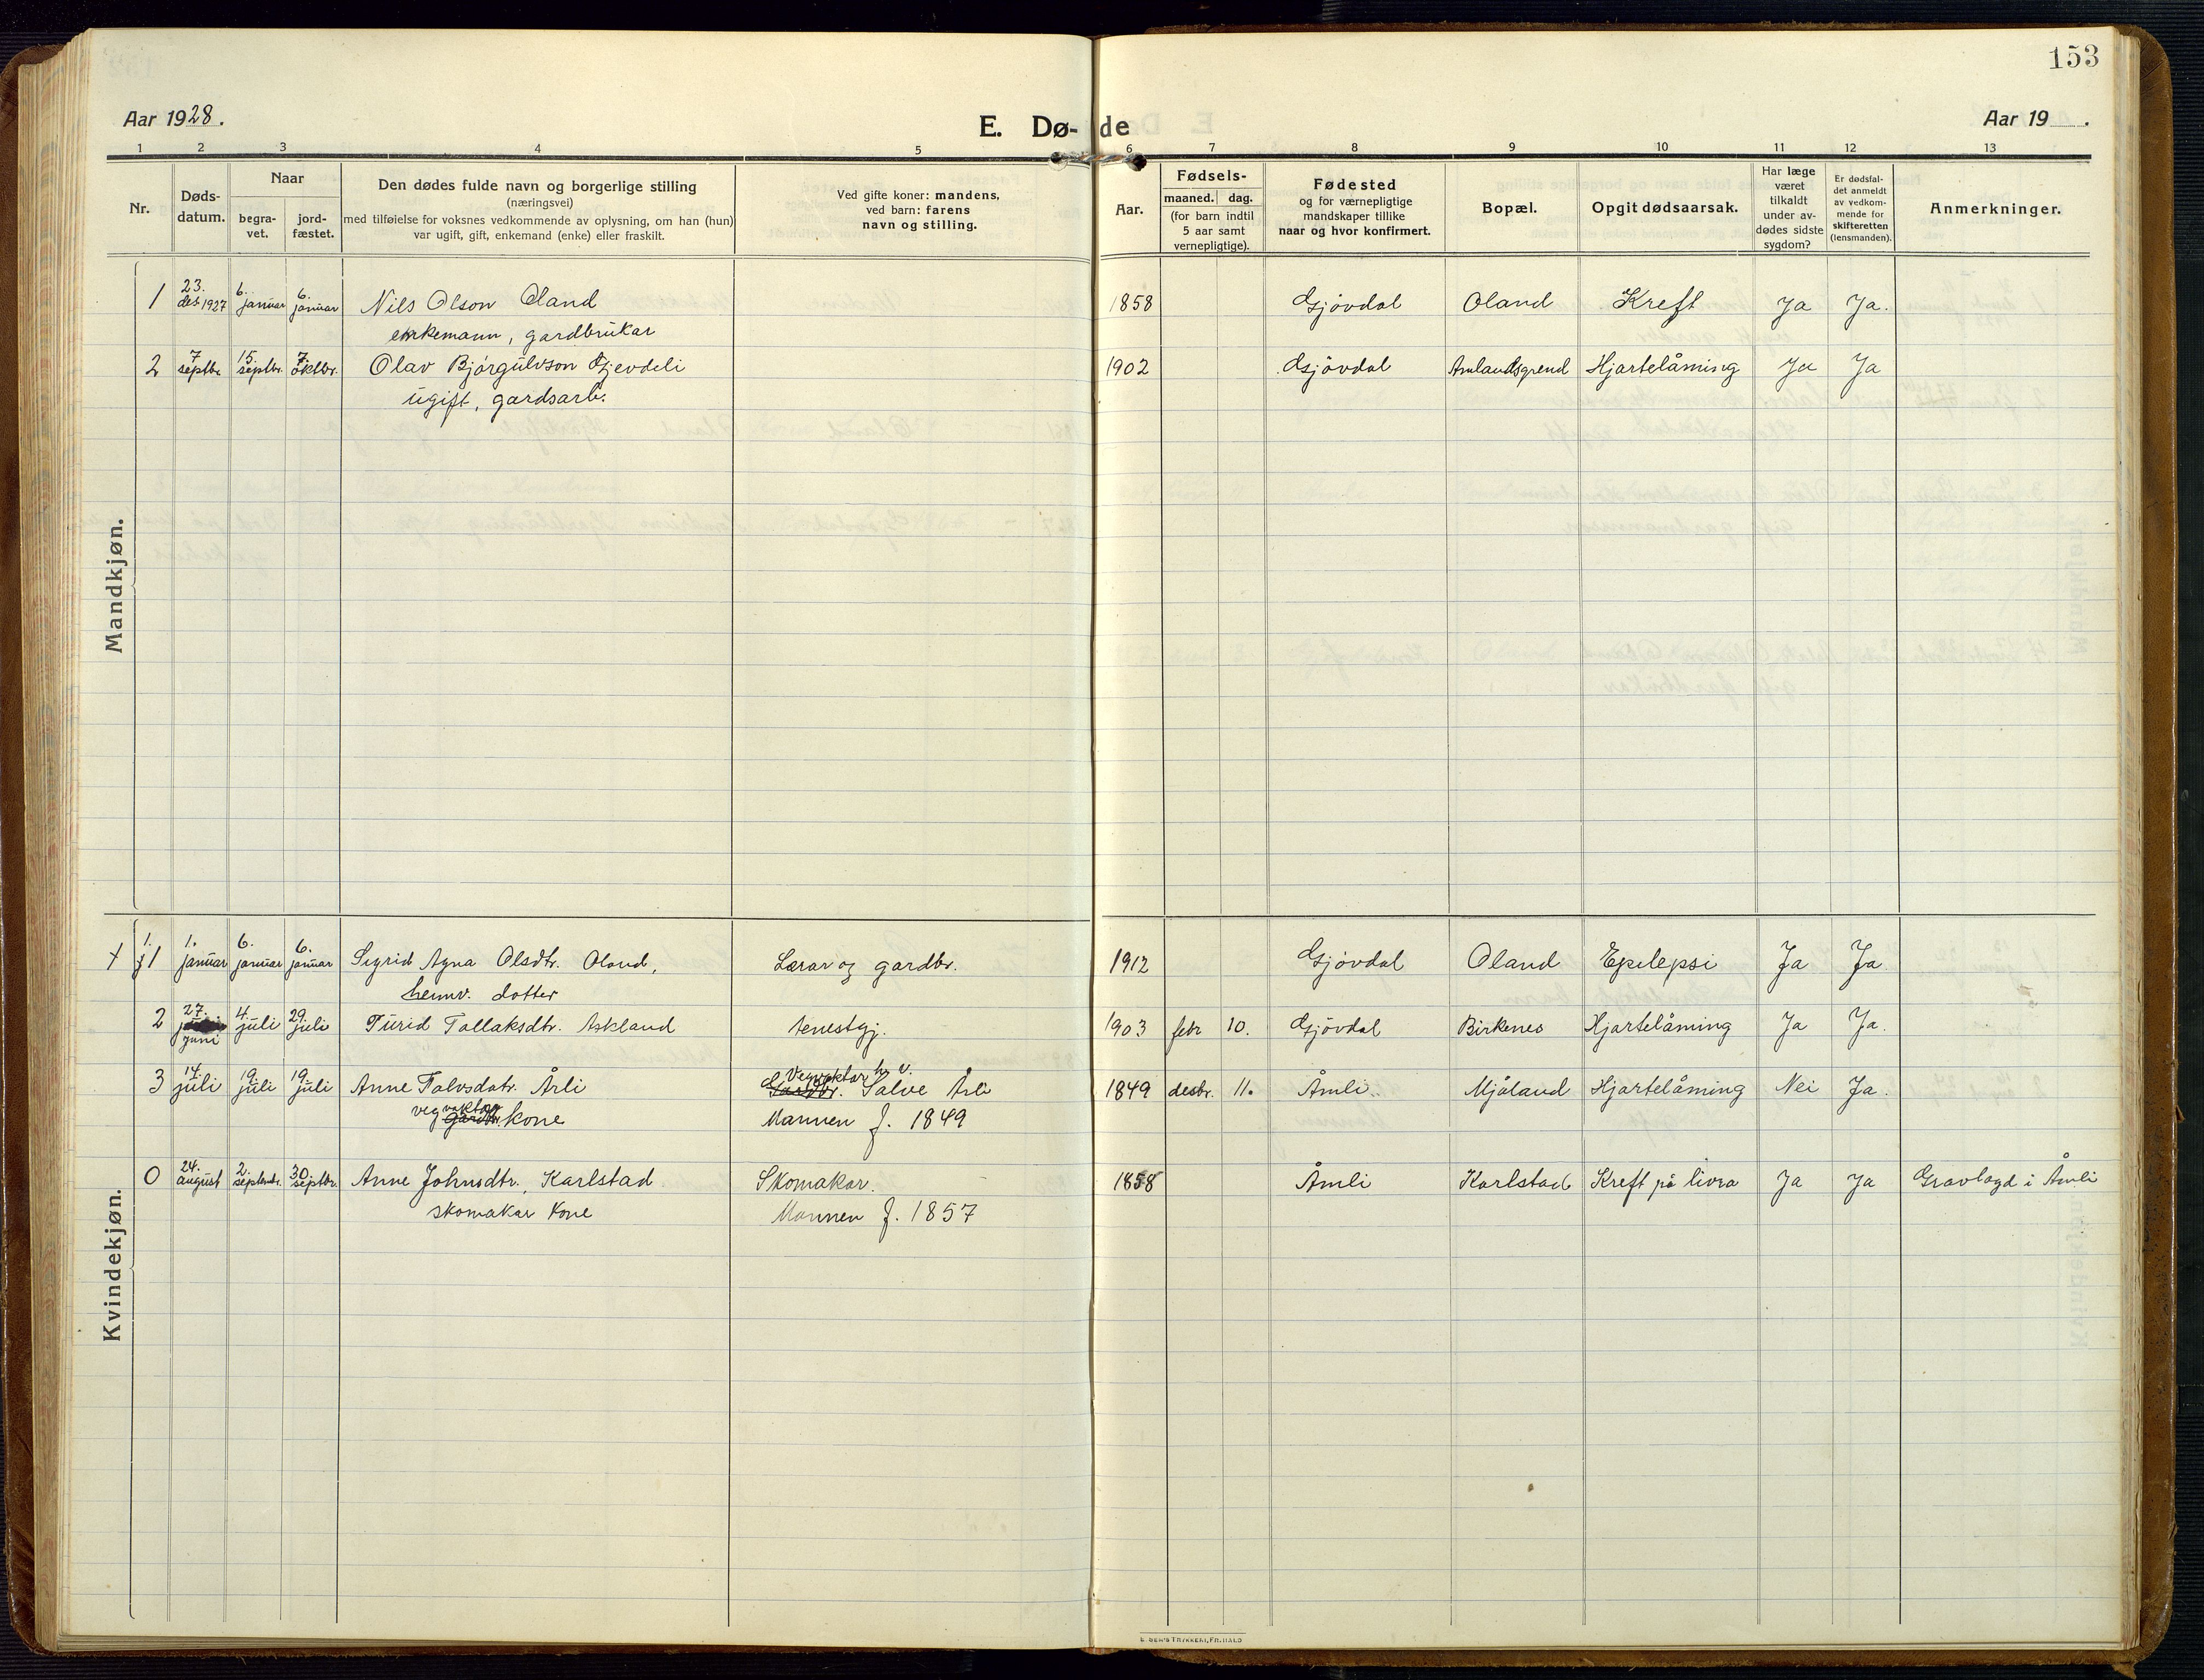 153
Aar 1928.
E. Dø- de
Aar 19 .
1 2 3 4 5 6 7 8 9 10 11 12 13
Nr.
Døds-
datum.
Naar
begra-
vet.
jord-
fæstet.
Den dødes fulde navn og borgerlige stilling
(næringsvei)
med tilføielse for voksnes vedkommende av oplysning, om han (hun)
var ugift, gift, enkemand (enke) eller fraskilt.
Ved gifte koner: mandens,
ved barn: farens
navn og stilling.
Aar.
Fødsels-
maaned. dag.
(for barn indtil
5 aar samt
vernepligtige).
Fødested
og for værnepligtige
mandskaper tillike
naar og hvor konfirmert.
Bopæl.
Opgit dødsaarsak.
Har læge
været
tilkaldt
under av-
dødes sidste
sygdom?
Er dødsfal-
det anmeldt
av vedkom-
mende for
skifteretten
(lensmanden).
Anmerkninger.
Mandkjøn.
1 23. des 1927 6. januar 6. januar Nils Olson Oland 1858 Gjövdal Oland Kreft Ja Ja.
enkemann, gardbrukar
2 7 septbr 15. septbr. 7. oktbr. Olav Bjørgulvson Gjevdeli 1902 Gjövdal Åmlandsgrend Hjartelåming Ja Ja
ugift, gardsarb.
Kvindekjøn.
1 1. januar 6. januar 6. januar Sigrid Agna Olsdtr. Oland, Lærar og gardbr. 1912 Gjövdal Oland Epilepsi Ja Ja.
heimv. dotter
2 27. juni 4. juli 29. juli Turid Tallaksdtr. Askland tenestgj. 1903 febr 10. Gjövdal Birkenes Hjartelåming Ja Ja.
3 14. juli 19. juli 19. juli Anne Talvsdatr. Årli Vegvaktar Gardbr. Salve Årli 1849 desbr. 11. Åmli Mjåland Hjartelåming Nei Ja.
vegvaktar gardbr. kone Mannen f. 1849
0 24. august 2. septembr. 30. septbr. Anne Johnsdtr. Karlstad Skomakar. 1858 Åmli Karlstad Kreft på livra Ja Ja Gravlagd i Åmli
skomakar kone Mannen f. 1857